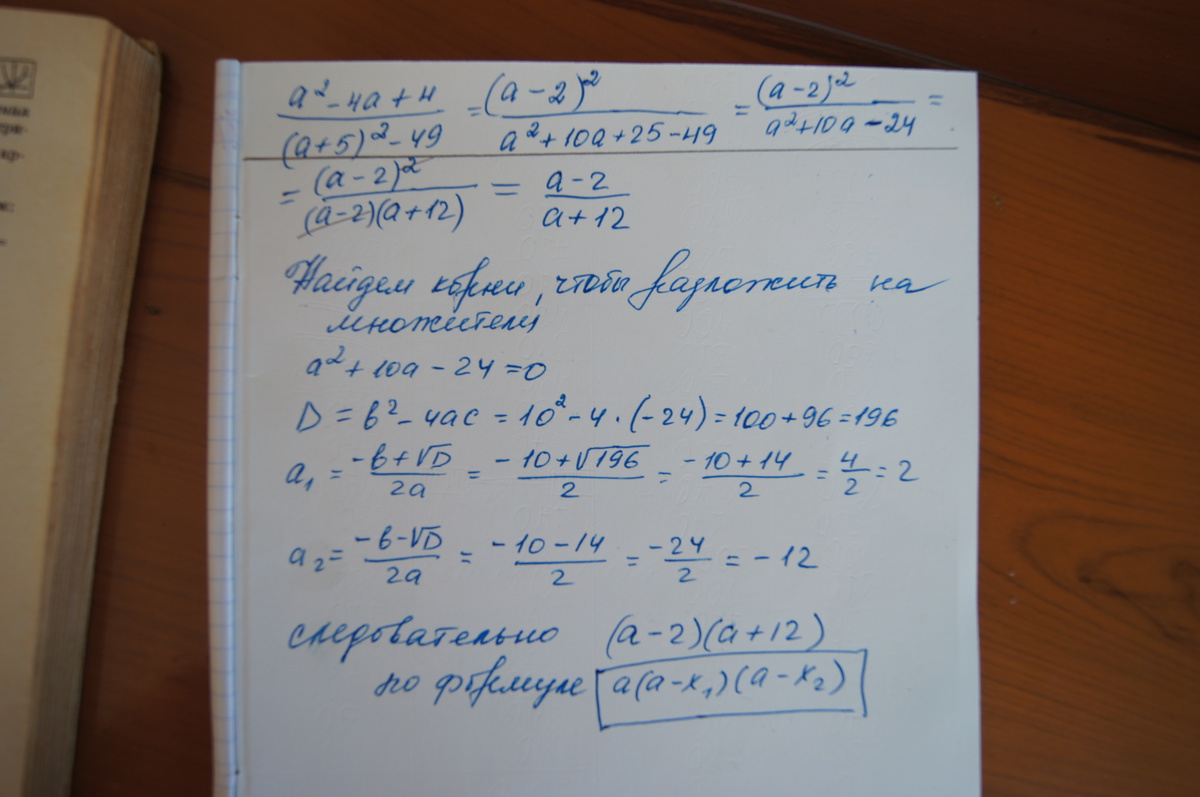 a² - 4a + 4 / (a+5)² - 49 = (a-2)² / a² + 10a + 25 - 49 = (a-2)² / a² + 10a - 24 =
= (a-2)² / (a-2)(a+12) = a-2 / a+12
Найдем корни, чтобы разложить на
множители
a² + 10a - 24 = 0
D = b² - 4ac = 10² - 4 · (-24) = 100 + 96 = 196
a₁ = -b+√D / 2a = -10+√196 / 2 = -10+14 / 2 = 4/2 = 2
a₂ = -b-√D / 2a = -10-14 / 2 = -24/2 = -12
следовательно (a-2)(a+12)
по формуле a(a-x₁)(a-x₂)